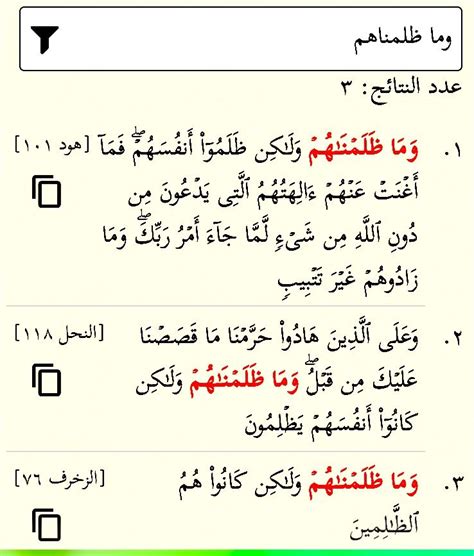 وما ظلمناهم
عدد النتائج: ٣
١. وَمَا ظَلَمۡنَٰهُمۡ وَلَٰكِن ظَلَمُوٓاْ أَنفُسَهُمۡۖ فَمَآ [هود ١٠١]
أَغۡنَتۡ عَنۡهُمۡ ءَالِهَتُهُمُ ٱلَّتِي يَدۡعُونَ مِن
دُونِ ٱللَّهِ مِن شَيۡءٖ لَّمَّا جَآءَ أَمۡرُ رَبِّكَۖ وَمَا
زَادُوهُمۡ غَيۡرَ تَتۡبِيبٖ
٢. وَعَلَى ٱلَّذِينَ هَادُواْ حَرَّمۡنَا مَا قَصَصۡنَا [النحل ١١٨]
عَلَيۡكَ مِن قَبۡلُۖ وَمَا ظَلَمۡنَٰهُمۡ وَلَٰكِن
كَانُوٓاْ أَنفُسَهُمۡ يَظۡلِمُونَ
٣. وَمَا ظَلَمۡنَٰهُمۡ وَلَٰكِن كَانُواْ هُمُ [الزخرف ٧٦]
ٱلظَّٰلِمِينَ